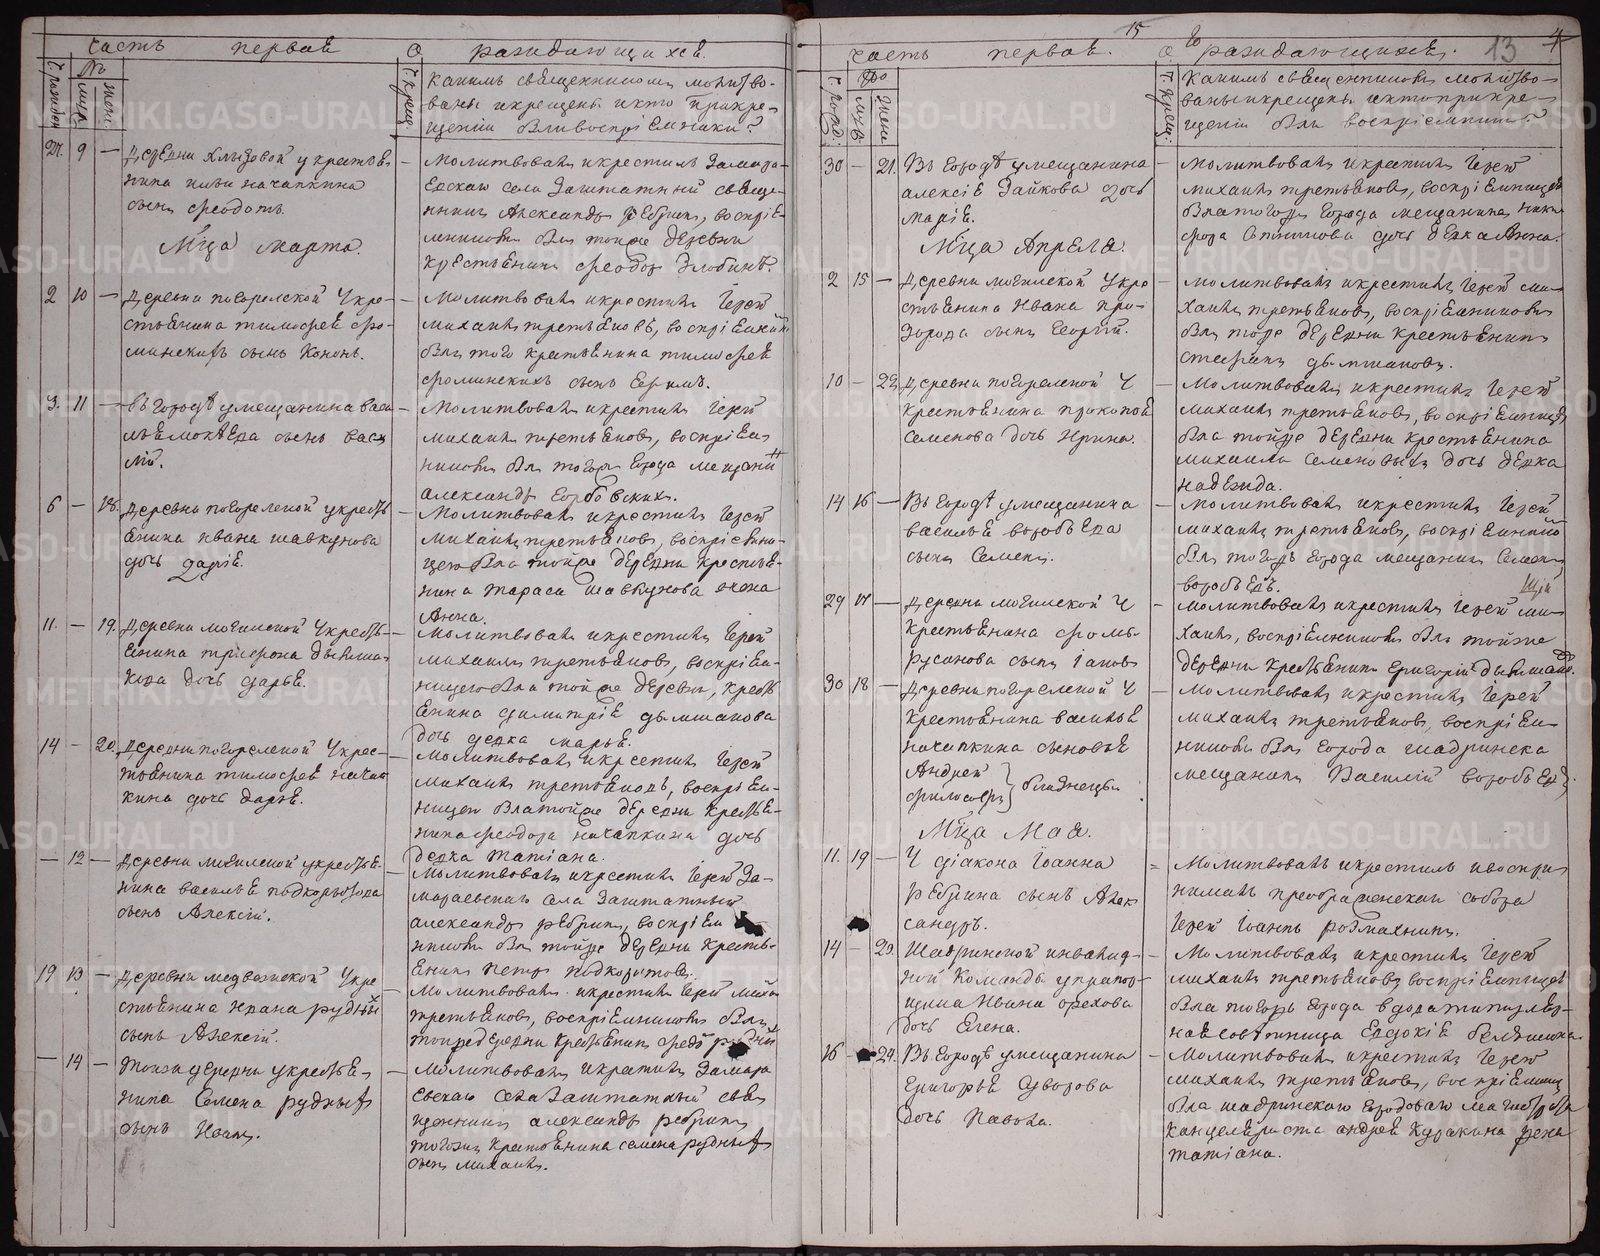 часть первая о раждающихся.
No
Какимъ священникомъ молитво-
ваны и крещены и кто при кре-
щеніи были воспріемники?
27. 9 — Деревни Хлызовой у крестья-
нина
сынъ Ѳеодотъ.
Мца Марта.
— Молитвовалъ и крестилъ Замара-
евскаго села заштатный свяще-
нникъ Александръ Ребринъ, воспріе-
мникомъ былъ тойже деревни
крестьянинъ Ѳеодоръ Злобинъ.
2 10 — Деревни Погорелской у кре-
стьянина Тимоѳея Ѳо-
минскихъ сынъ Кононъ.
— Молитвовалъ и крестилъ Іерей
Михаилъ Третьяковъ, воспріемник
былъ того крестьянина Тимоѳея
Ѳоминскихъ сынъ Ефимъ.
3. 11 — Въ городѣ у мещанина Васи
лья Моквева сынъ Васи
лій.
— Молитвовалъ и крестилъ Іерей
Михаилъ Третьяковъ, воспріем
никомъ былъ тогожъ города мещани
Александръ Горбовскихъ.
6 — 18. Деревни Погорелской у кресть
янина Ивана Шавкунова
дочь Дарія.
— Молитвовалъ и крестилъ Іерей
Михаилъ Третьяковъ, воспріемни-
цею была тойже деревни крестья-
нина Тараса Шавкунова жена
Анна.
11. — 19. Деревни Могилской у кресть-
янина Триѳона Дымша-
кова дочь Дарья.
— Молитвовалъ и крестилъ Іерей
Михаилъ Третьяковъ, воспріем-
ницею была тойже деревни, кресть
янина Димитрія Дымшакова
дочь девка Марья.
14 — 20. Деревни Погорелской у крес-
тьянина Тимоѳея Качал
кина дочь Дарья.
— Молитвовалъ и крестилъ Іерей
Михаилъ Третьяковъ, воспріем-
ницею была тойже деревни крестья-
нина Ѳеодора Качалкина дочь
девка Татіана.
— 12 — Деревни Могилской у крестья-
нина Василья Подкорытова
сынъ Алексій.
— Молитвовалъ и крестилъ Іерей За-
мараевскаго села заштатный
Александръ Ребринъ, воспріем
никомъ былъ тойже деревни кресть-
янинъ Петръ Подкорытовъ.
19 13 — Деревни Медвежской у кре
стьянина Ивана Рудныхъ
сынъ Алексій.
— Молитвовалъ и крестилъ Іерей Миха
Третьяковъ, воспріемникомъ былъ
тойже деревни крестьянинъ
— 14 — Тойже деревни у крестья-
нина Семена Рудныхъ
сынъ Иванъ.
— Молитвовалъ и крестилъ Замара
евскаго села заштатный свя
щенникъ Александръ Ребринъ
тогожъ крестьянина Семена Рудныхъ
сынъ Михаилъ.
15 13
часть первая. о раждающихся.
Какимъ священникомъ молитво-
ваны и крещены и кто при кре-
щеніи былъ воспріемникомъ?
30 — 21. Въ городѣ у мещанина
Алексія Зайкова дочь
Марія.
Мца Апреля.
— Молитвовалъ и крестилъ Іерей
Михаилъ Третьяковъ, воспріемницею
была тогожъ города мещанина Ники
фора дочь девка Анна.
2 15 — Деревни Могилской у кре
стьянина Ивана Про-
зорова сынъ Георгій.
— Молитвовалъ и крестилъ Іерей Ми-
хаилъ Третьяковъ, воспріемникомъ
былъ тойже деревни крестьянинъ
Стефанъ Дымшаковъ.
10 — 22. Деревни Погорелской у
крестьянина Прокопья
Семенова дочь Ирина.
— Молитвовалъ и крестилъ Іерей
Михаилъ Третьяковъ, воспріемницею
была тойже деревни крестьянина
Михаила Семеновыхъ дочь девка
Надежда.
14 16 — Въ городѣ у мещанина
Василья Воробьева
сынъ Семенъ.
— Молитвовалъ и крестилъ Іерей
Михаилъ Третьяковъ, воспріемнико
былъ тогожъ города мещанинъ Семенъ
Воробьевъ.
29 17 — Деревни Могилской у
крестьянина Ѳомы
Русанова сынъ Іаковъ
— Молитвовалъ и крестилъ Іерей Ми-
хаилъ, воспріемникомъ былъ тойже
деревни крестьянинъ Григорій Дымшако.
30 18 — Деревни Погорелской у
крестьянина Василья
Качалкина сыновья
Андрей
Филосоѳъ } близнецы.
— Молитвовалъ и крестилъ Іерей
Михаилъ Третьяковъ, воспріем-
никомъ былъ города Шадринска
мещанинъ Василій Воробьевъ.
Мца Мая.
11. 19 — У діакона Іоанна
Ребрина сынъ Алек
сандръ.
— Молитвовалъ и крестилъ и воспри
нималъ Преображенскаго собора
Іерей Іоаннъ Розмахнинъ.
14 — 23. Шадринской инвалид-
ной команды у прапор-
щика Ивана Орехова
дочь Елена.
— Молитвовалъ и крестилъ Іерей
Михаилъ Третьяковъ воспріемницею
была тогожъ города вдова титуляр-
ная советница Евдокія
16 — 24. Въ городѣ у мещанина
Григорья Суворова
дочь Павола.
— Молитвовалъ и крестилъ Іерей
Михаилъ Третьяковъ, воспріемниц
была Шадринскаго городоваго магистрата
канцеляриста Андрея Куракина жена
Татіана.